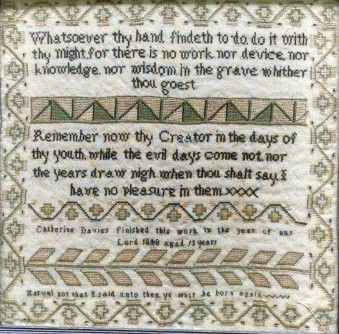 Whatsoever thy hand findeth to do, do it with
thy might, for there is no work nor device nor
knowledge nor wisdom in the grave whither
thou goest
Remember now thy Creator in the days of
thy youth, while the evil days come not, nor
the years draw nigh when thou shalt say, I
have no pleasure in them xxxx
Catherine Davies finished this work in the year of our
Lord aged years
Marvel not that I said unto thee ye must be born again